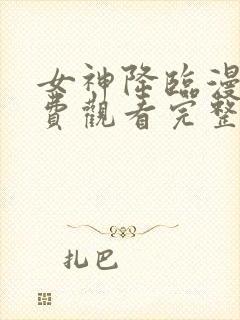 女神降臨漫
費觀看完整
扎巴